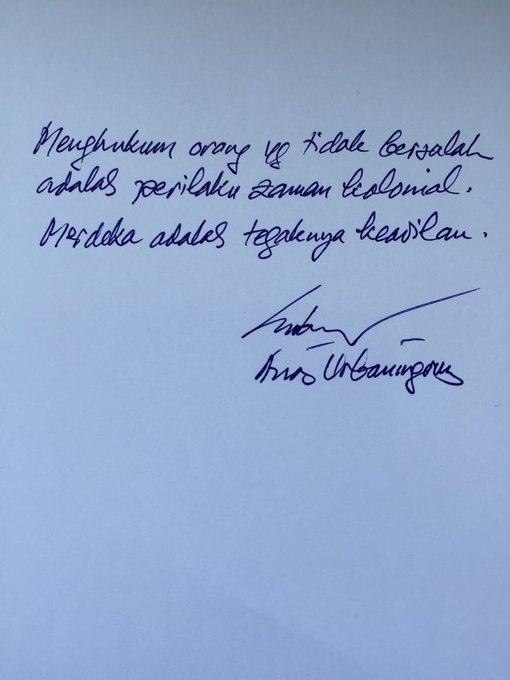 Menghukum orang yg tidak bersalah
adalah perilaku zaman kolonial.
Merdeka adalah tegaknya keadilan.
Anas Urbaningrum